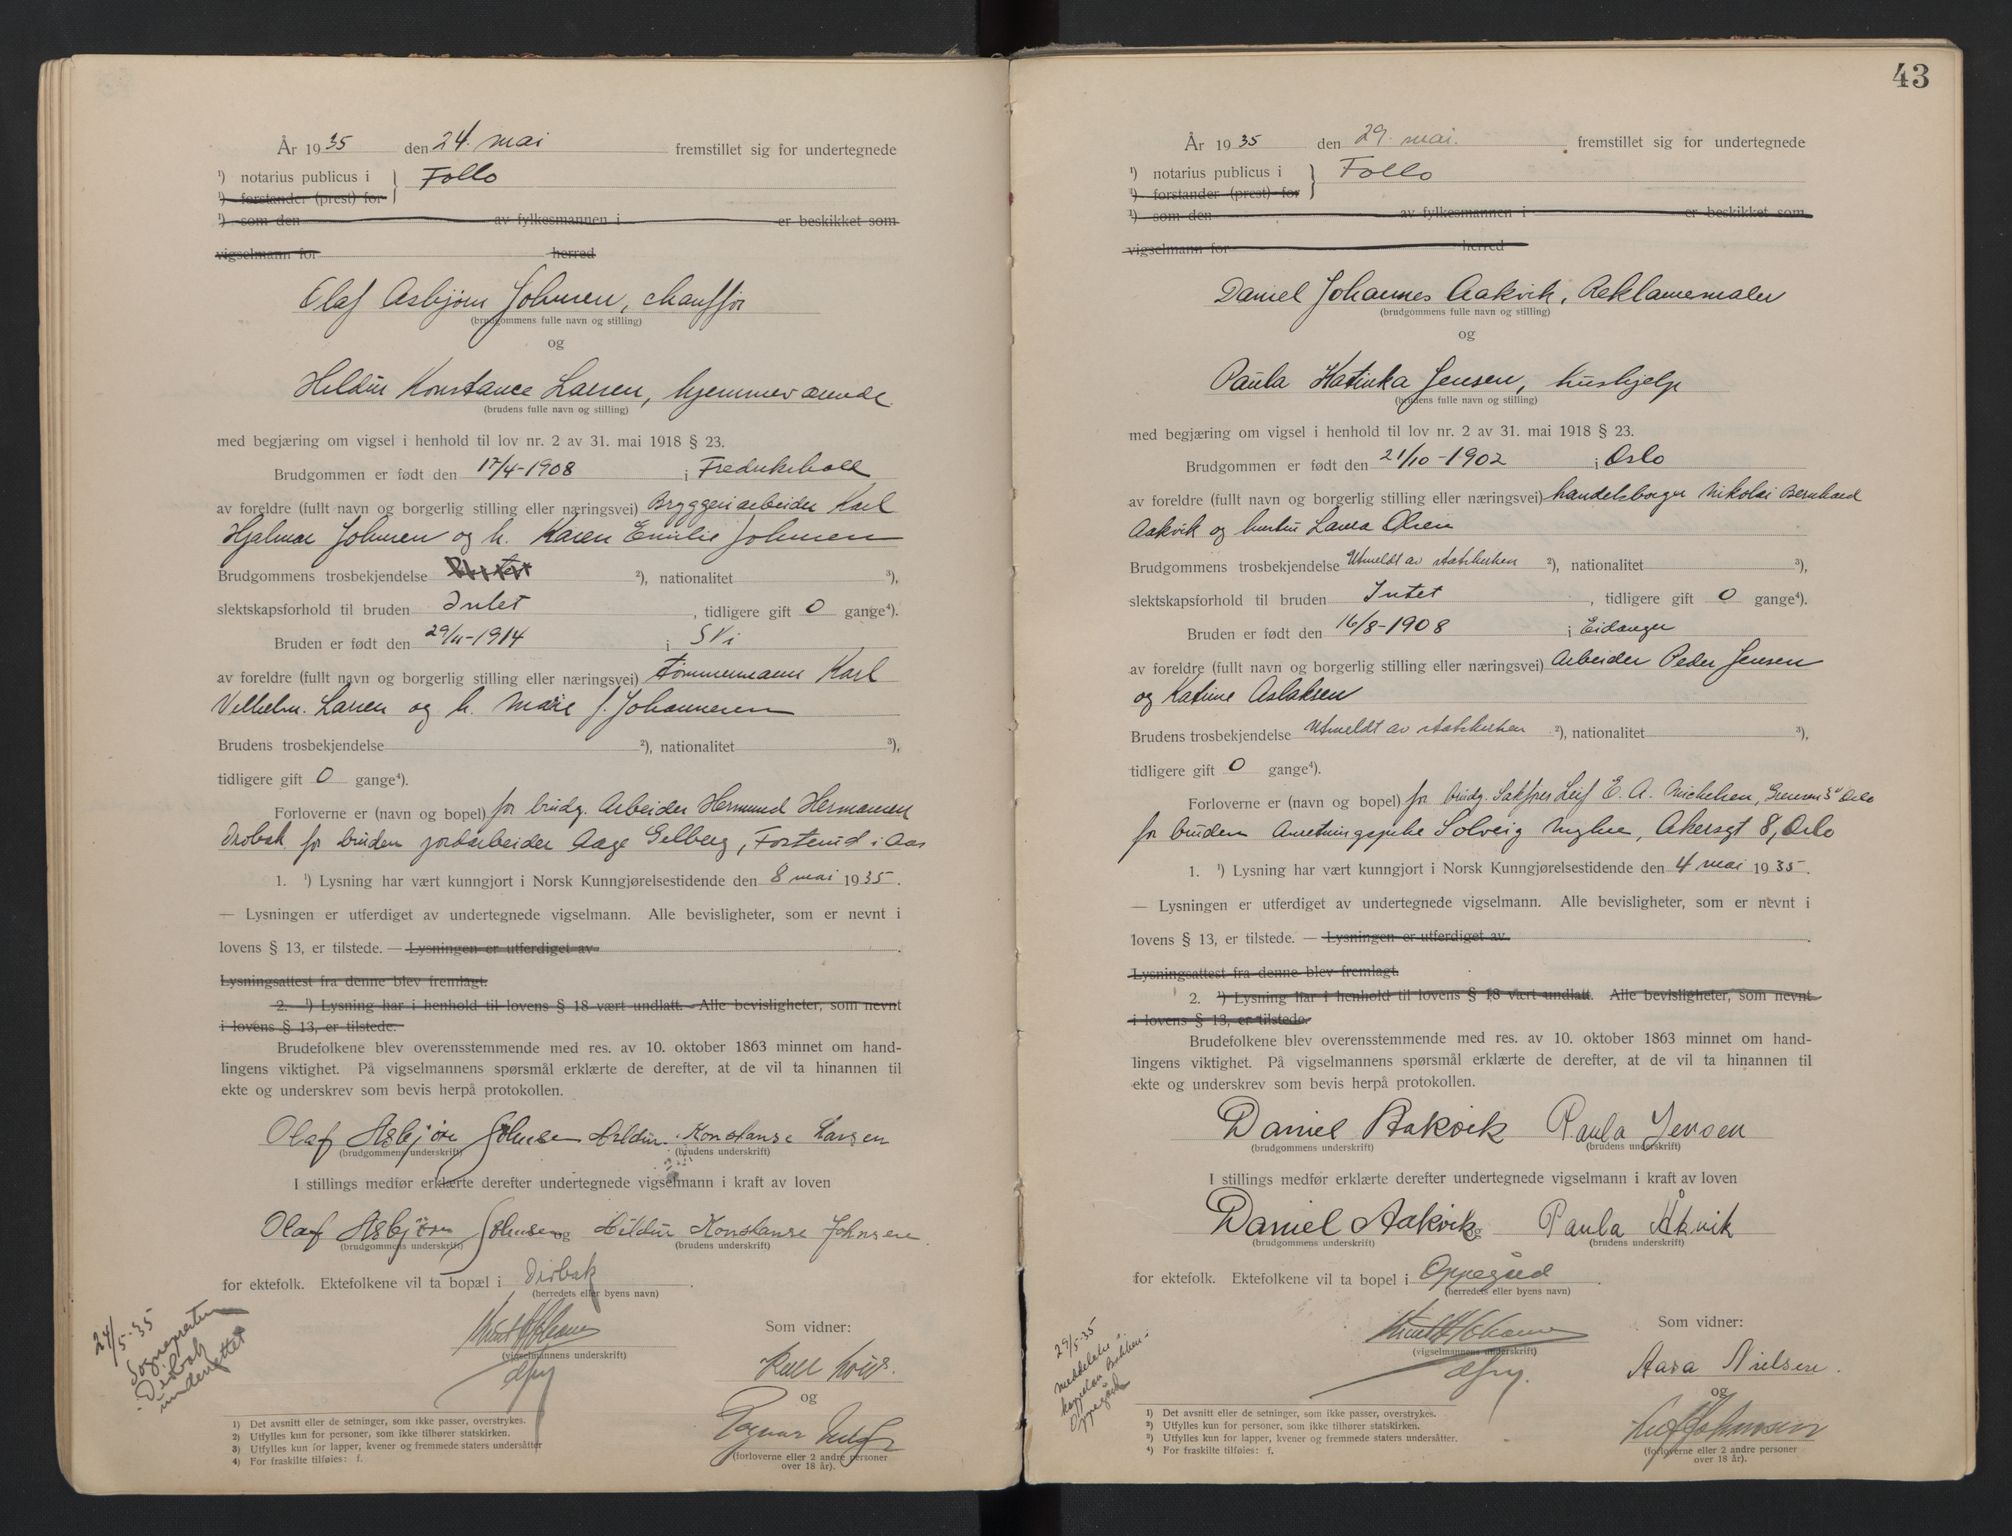 År 1935 den 24. mai fremstillet sig for undertegnede
¹) notarius publicus i } Follo
¹) forstander (prest) for
¹) som den av fylkesmannen i er beskikket som
vigselmann for herred
Olaf Asbjørn Johnsen, chauffør
(brudgommens fulle navn og stilling)
og
Hildur Konstance Larsen, hjemmeværende
(brudens fulle navn og stilling)
med begjæring om vigsel i henhold til lov nr. 2 av 31. mai 1918 § 23.
Brudgommen er født den 17/4-1908 i Fredrikshald
av foreldre (fullt navn og borgerlig stilling eller næringsvei) Bryggeriarbeider Karl
Hjalmar Johnsen og h. Karen Emilie Johnsen
Brudgommens trosbekjendelse ²), nationalitet ³),
slektskapsforhold til bruden Intet, tidligere gift 0 gange⁴).
Bruden er født den 29/11-1914 i Ski
av foreldre (fullt navn og borgerlig stilling eller næringsvei) tømmermann Karl
Vilhelm Larsen og h. Marie f. Johannesen
Brudens trosbekjendelse ²), nationalitet ³),
tidligere gift 0 gange⁴).
Forloverne er (navn og bopel) for brudg. Arbeider Hermund Hermansen
Drøbak for bruden jordarbeider Aage Gelberg, Fosterud i Aas
1. ¹) Lysning har vært kunngjort i Norsk Kunngjørelsestidende den 8 mai 1935.
— Lysningen er utferdiget av undertegnede vigselmann. Alle bevisligheter, som er nevnt i
lovens § 13, er tilstede. — Lysningen er utferdiget av
Lysningsattest fra denne blev fremlagt.
2. ¹) Lysning har i henhold til lovens § 18 vært undlatt. - Alle bevisligheter, som nevnt
i lovens § 13, er tilstede.
Brudefolkene blev overensstemmende med res. av 10. oktober 1863 minnet om hand-
lingens viktighet. På vigselmannens spørsmål erklærte de derefter, at de vil ta hinannen til
ekte og underskrev som bevis herpå protokollen.
Olaf Asbjørn Johnsen Hildur Konstanse Larsen
(brudgommens underskrift) (brudens underskrift)
I stillings medfør erklærte derefter undertegnede vigselmann i kraft av loven
Olaf Asbjørn Johnsen og Hildur Konstanse Johnsen
(brudgommens underskrift) (brudens underskrift)
for ektefolk. Ektefolkene vil ta bopæl i Drøbak
(herredets eller byens navn)
24/5-35
Sognepresten
Drøbak
underrettet
Som vidner:
(vigselmannens underskrift)
og
Ragnar
(forloverne eller 2 andre personer
over 18 år).
1) Det avsnitt eller de setninger, som ikke passer, overstrykes.
2) Utfylles kun for personer, som ikke tilhører statskirken.
3) Utfylles kun for lapper, kvener og fremmede staters undersåtter
4) For fraskilte tilføies: f.
43
År 1935 den 29. mai. fremstillet sig for undertegnede
¹) notarius publicus i } Follo
¹) forstander (prest) for
¹) som den av fylkesmannen i er beskikket som
vigselmann for herred
Daniel Johannes Aakvik, Reklamemaler
(brudgommens fulle navn og stilling)
og
Paula Katinka Jensen, hushjelp
(brudens fulle navn og stilling)
med begjæring om vigsel i henhold til lov nr. 2 av 31. mai 1918 § 23.
Brudgommen er født den 21/10-1902 i Oslo
av foreldre (fullt navn og borgerlig stilling eller næringsvei) handelsborger Nikolai Bernhard
Aakvik og hustru Laura Olsen
Brudgommens trosbekjendelse Utmeldt av statskirken ²), nationalitet ³),
slektskapsforhold til bruden Intet, tidligere gift 0 gange⁴).
Bruden er født den 16/8-1908 i Eidanger
av foreldre (fullt navn og borgerlig stilling eller næringsvei) Arbeider Peder Jensen
og Katrine Aslaksen
Brudens trosbekjendelse Utmeldt av statskirken ²), nationalitet ³),
tidligere gift 0 gange⁴).
Forloverne er (navn og bopel) for brudg. Sakfører Leif E. A. Michelsen, Oslo
for bruden Anretningspike Solveig Myhre, Akersgt 8, Oslo
1. ¹) Lysning har vært kunngjort i Norsk Kunngjørelsestidende den 4 mai 1935.
— Lysningen er utferdiget av undertegnede vigselmann. Alle bevisligheter, som er nevnt i
lovens § 13, er tilstede. — Lysningen er utferdiget av
Lysningsattest fra denne blev fremlagt.
2. ¹) Lysning har i henhold til lovens § 18 vært undlatt. Alle bevisligheter, som nevnt
i lovens § 13, er tilstede.
Brudefolkene blev overensstemmende med res. av 10. oktober 1863 minnet om hand-
lingens viktighet. På vigselmannens spørsmål erklærte de derefter, at de vil ta hinannen til
ekte og underskrev som bevis herpå protokollen.
Daniel Aakvik Paula Jensen
(brudgommens underskrift) (brudens underskrift)
I stillings medfør erklærte derefter undertegnede vigselmann i kraft av loven
Daniel Aakvik og Paula Åkvik
(brudgommens underskrift) (brudens underskrift)
for ektefolk. Ektefolkene vil ta bopel i Oppegård
(herredets eller byens navn)
29/5-35
meddelelse
kappelan Bakken
Oppegård
Som vidner:
(vigselmannens underskrift)
Aasa Nielsen.
og
(forloverne eller 2 andre personer
over 18 år).
1) Det avsnitt eller de setninger, som ikke passer, overstrykes.
2) Utfylles kun for personer, som ikke tilhører statskirken.
3) Utfylles kun for lapper, kvener og fremmede staters undersåtter.
4) For fraskilte tilføies: f.